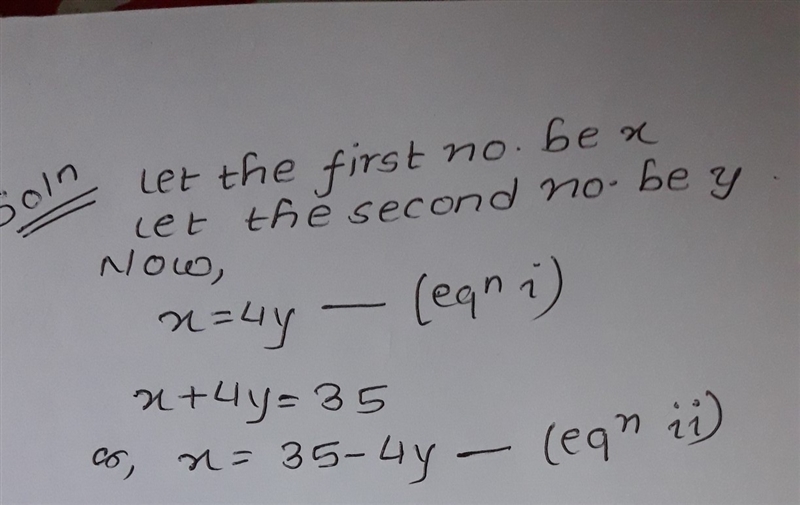 Soln Let the first no. be x
Let the second no. be y.
Now,
x=4y — (eqⁿ i)
x+4y=35
or, x= 35-4y — (eqⁿ ii)